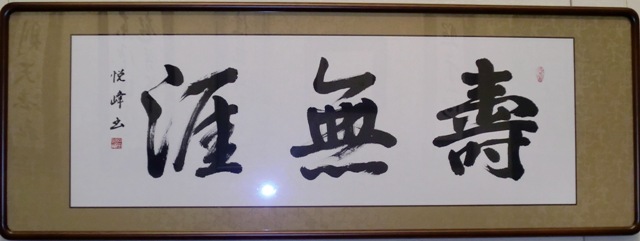 壽無涯
悅峰书